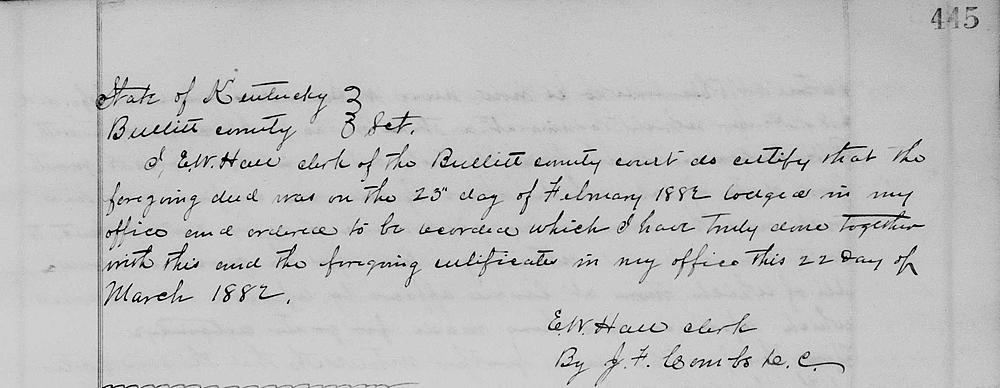 445
State of Kentucky }
Bullitt county } Sct.
I, E.W. Hall clerk of the Bullitt county court do certify that the
foregoing deed was on the 23" day of February 1882 lodged in my
office and ordered to be recorded which I have truly done together
with this and the foregoing certificate in my office this 22 day of
March 1882.
E.W. Hall clerk
By J. F. Combs D.C.